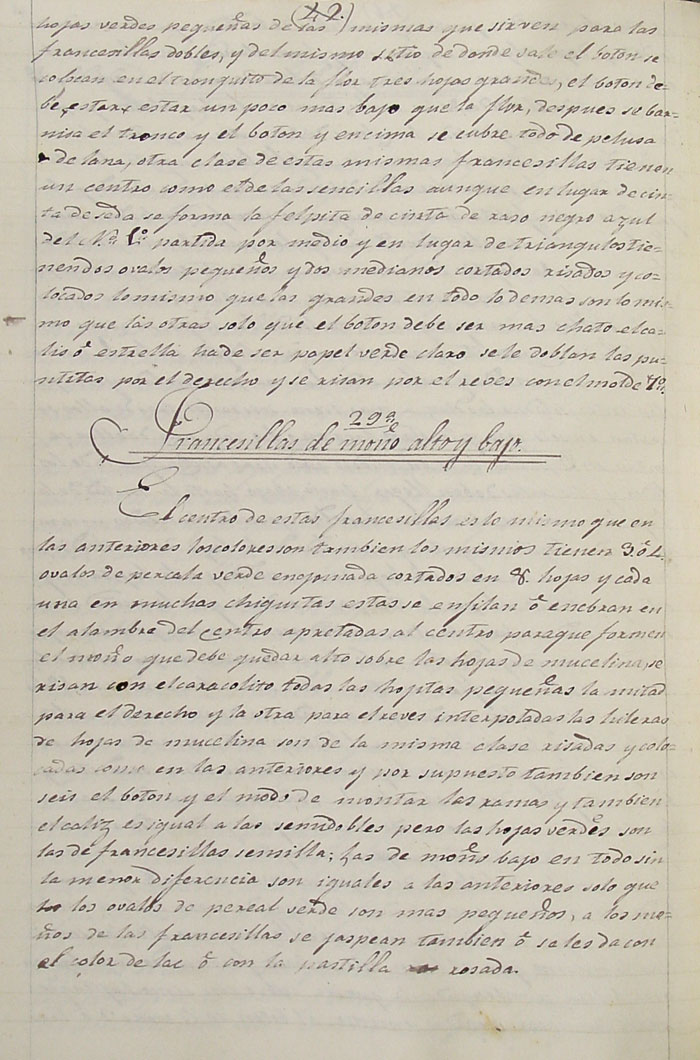 (42.)
hojas verdes pequeñas de las mismas que sirven para las
francesillas dobles, y del mismo sitio de donde sale el boton se
colocan en el tronquito de la flor tres hojas grandes, el boton de=
be estar estar un poco mas bajo que la flor, despues se bar=
nisa el tronco y el boton y encima se cubre todo de pelusa
de lana, otra clase de estas mismas francesillas tienen
un centro como el de las sencillas aunque en lugar de cin=
ta de seda se forma la felpita de cinta de raso negro azul
del No. 1o. partida por medio y en lugar de triangulos tie=
nen dos ovalos pequeños y dos medianos cortados risados y co=
locados lo mismo que las grandes en todo lo demas son lo mis=
mo que las otras solo que el boton debe ser mas chato el ca=
lis ó estrella ha de ser papel verde claro se le doblan las pu=
ntitas por el derecho y se risan por el reves con el molde 7o.
29a.
Francesillas de moño alto y bajo.
El centro de estas francesillas es lo mismo que en
las anteriores los colores son tambien los mismos tienen 3 ó 4
ovalos de percala verde engomada cortados en 8 hojas y cada
una en muchas chiquitas estas se enfilan ó enebran en
el alambre del centro apretadas al centro para que formen
el moño que debe quedar alto sobre las hojas de mucelina, se
risan con el caracolito todas las hojitas pequeñas la mitad
para el derecho y la otra para el reves interpoladas las hileras
de hojas de mucelina son de la misma clase risadas y colo=
cadas como en las anteriores y por supuesto tambien son
seis el boton y el modo de montar las ramas y tambien
el caliz es igual a las semidobles pero las hojas verdes son
las de francesillas semilla; las de moño bajo en todo sin
la menor diferencia son iguales a las anteriores solo que
los ovalos de percal verde son mas pequeños, a los mo=
ños de las francesillas se jaspean tambien ó se les da con
el color de lac ó con la pastilla rosada.